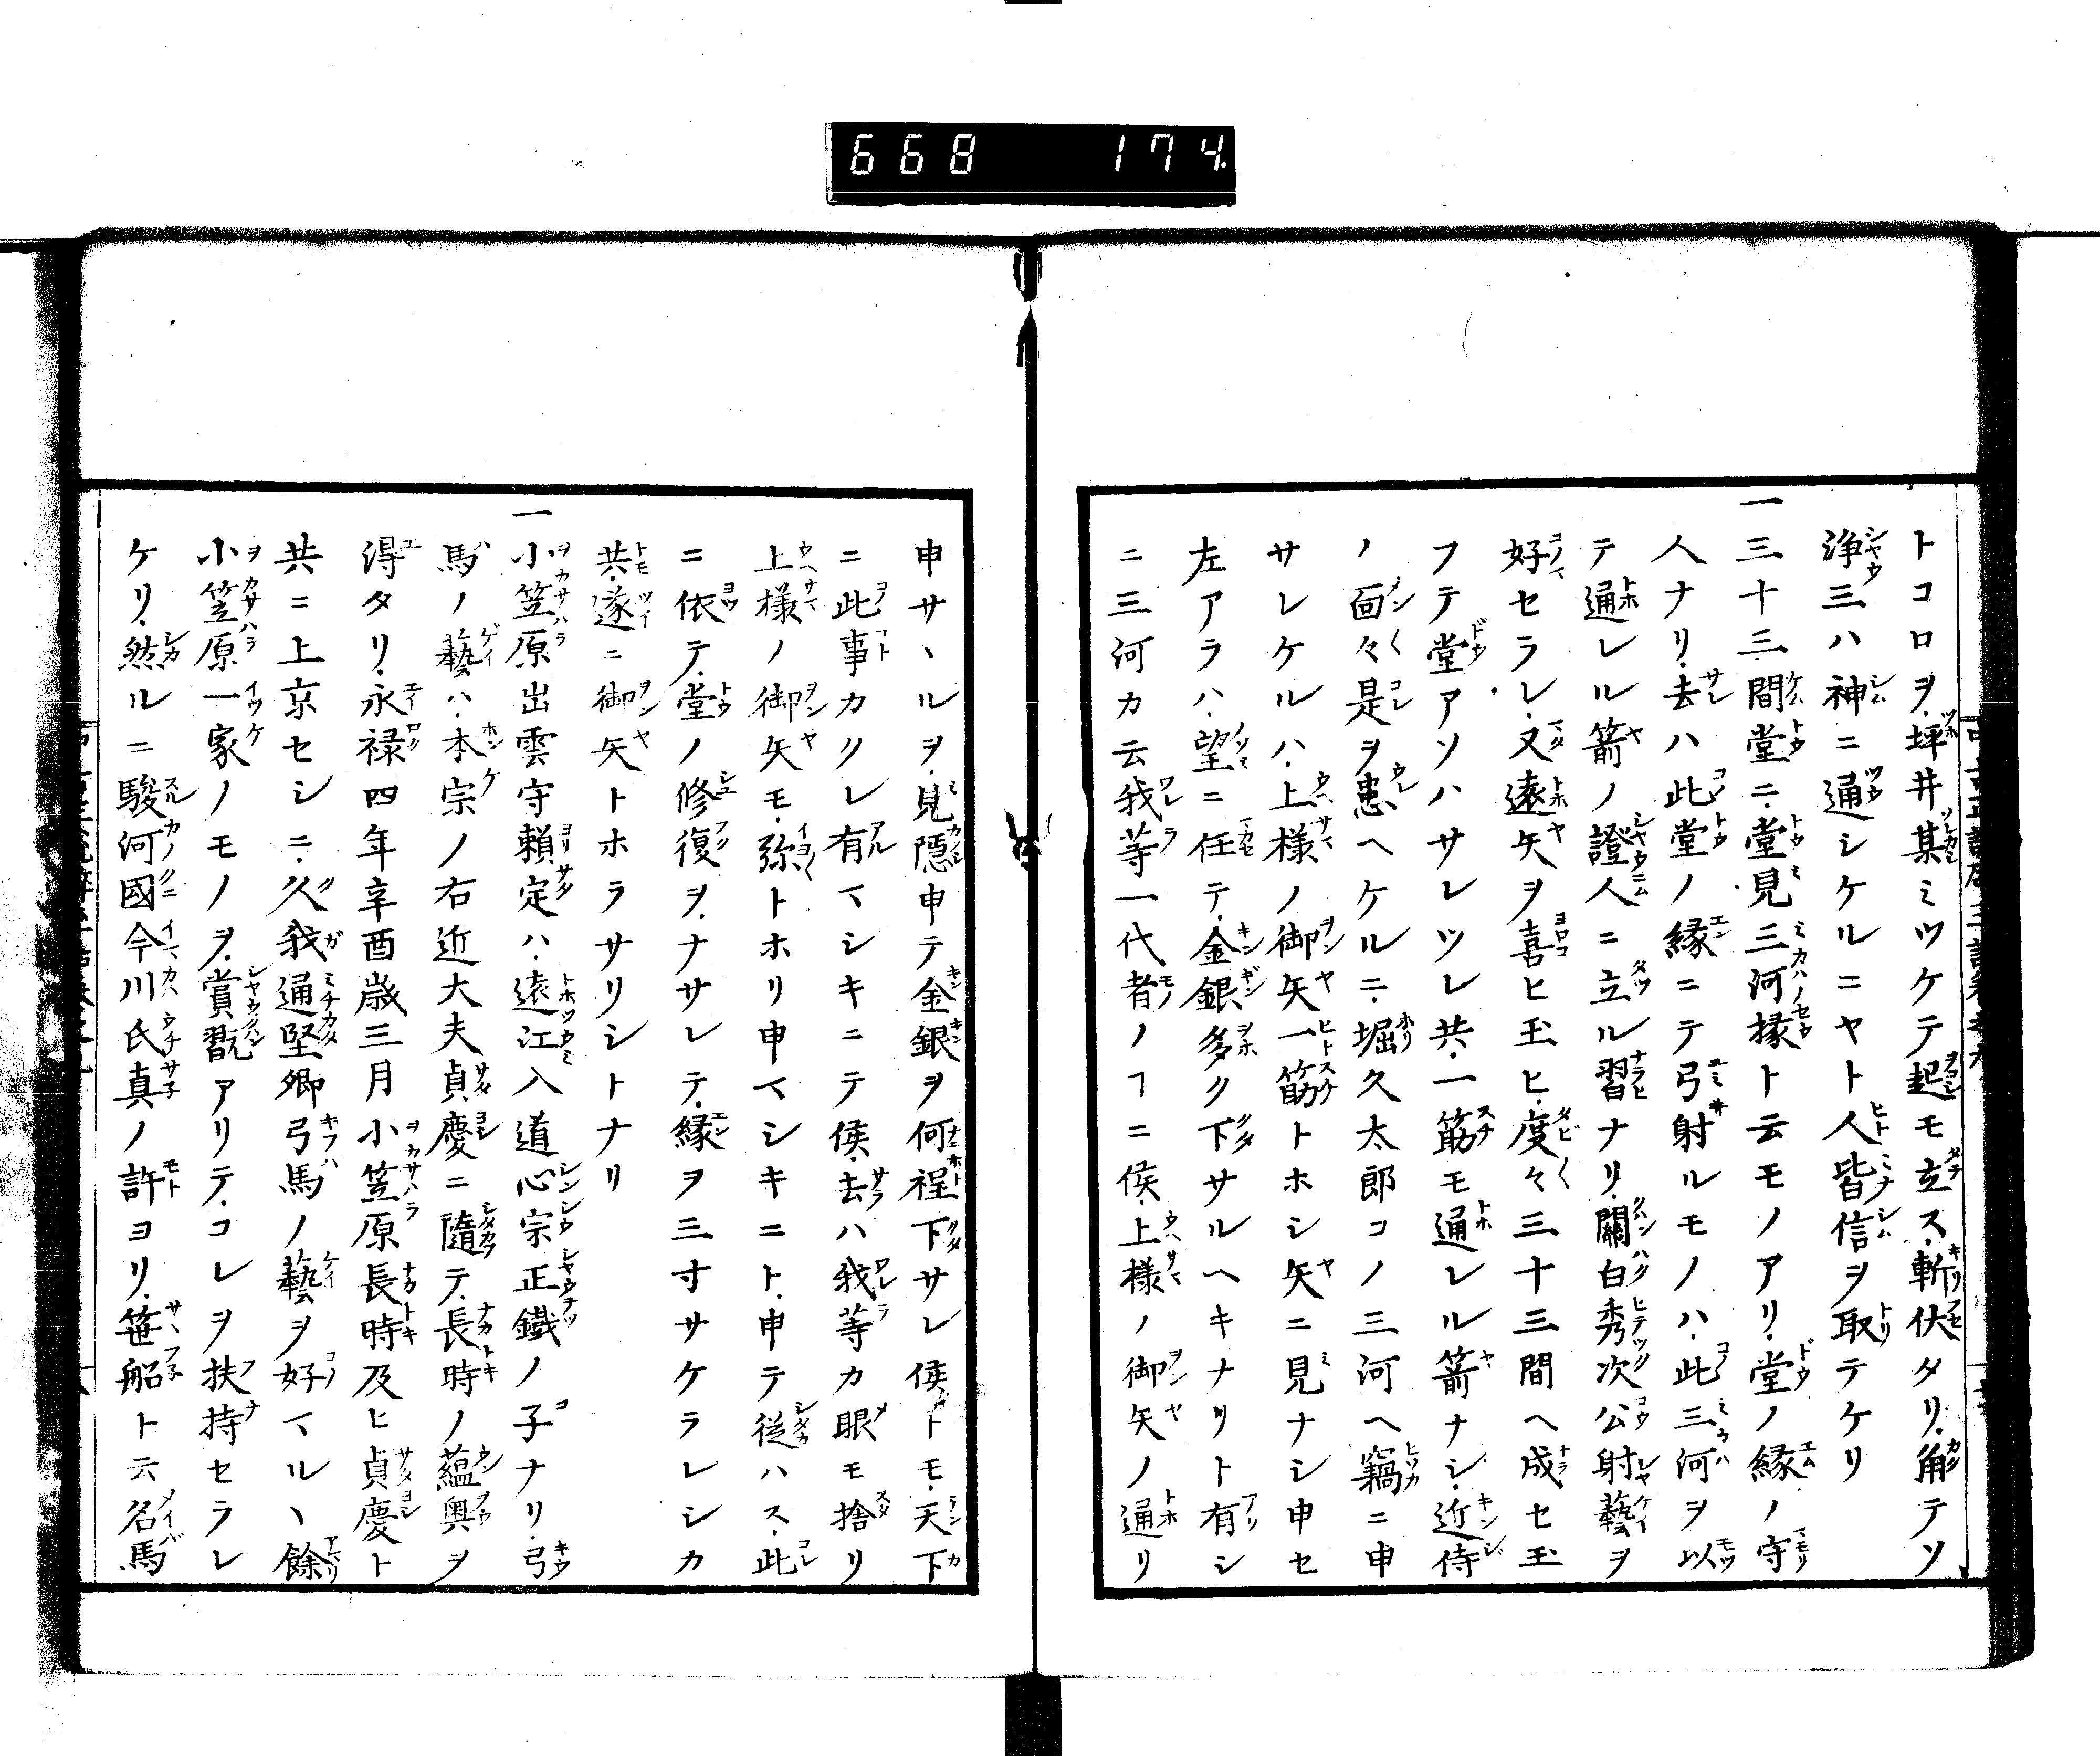 668 174
トコロヲ坪井某ミツケテ起モ立ス斬伏タリ角テソ
浄三ハ神ニ通シケルニヤト人皆信ヲ取テケリ
一三十三間堂ニ堂見三河掾ト云モノアリ堂ノ縁ノ守
人ナリ去ハ此堂ノ縁ニテ弓射ルモノハ此三河ヲ以
テ通レル箭ノ證人ニ立ル習ナリ關白秀次公射藝ヲ
好セラレ又遠矢ヲ喜ヒ玉ヒ度々三十三間ヘ成セ玉
フテ堂アソハサレツレ共一筋モ通レル箭ナシ近侍
ノ面々是ヲ患ヘケルニ堀久太郎コノ三河ヘ竊ニ申
サレケルハ上様ノ御矢一筋トホシ矢ニ見ナシ申セ
左アラハ望ニ任テ金銀多ク下サルヘキナリト有シ
ニ三河カ云我等一代者ノヿニ侯上様ノ御矢ノ通リ
申サヽルヲ見隠申テ金銀ヲ何程下サレ侯トモ天下
ニ此事カクレ有マシキニテ侯去ハ我等カ眼モ捨リ
上様ノ御矢モ弥トホリ申マシキニト申テ従ハス此
ニ依テ堂ノ修復ヲナサレテ縁ヲ三寸サケラレシカ
共遂ニ御矢トホラサリシトナリ
一小笠原出雲守頼定ハ遠江入道心宗正鐵ノ子ナリ弓
馬ノ藝ハ本宗ノ右近大夫貞慶ニ随テ長時ノ蘊奥ヲ
得タリ永禄四年辛酉歳三月小笠原長時及ヒ貞慶ト
共ニ上京セシニ久我通堅卿弓馬ノ藝ヲ好マルヽ餘
小笠原一家ノモノヲ賞翫アリテコレヲ扶持セラレ
ケリ然ルニ駿河國今川氏真ノ許ヨリ笹船ト云名馬